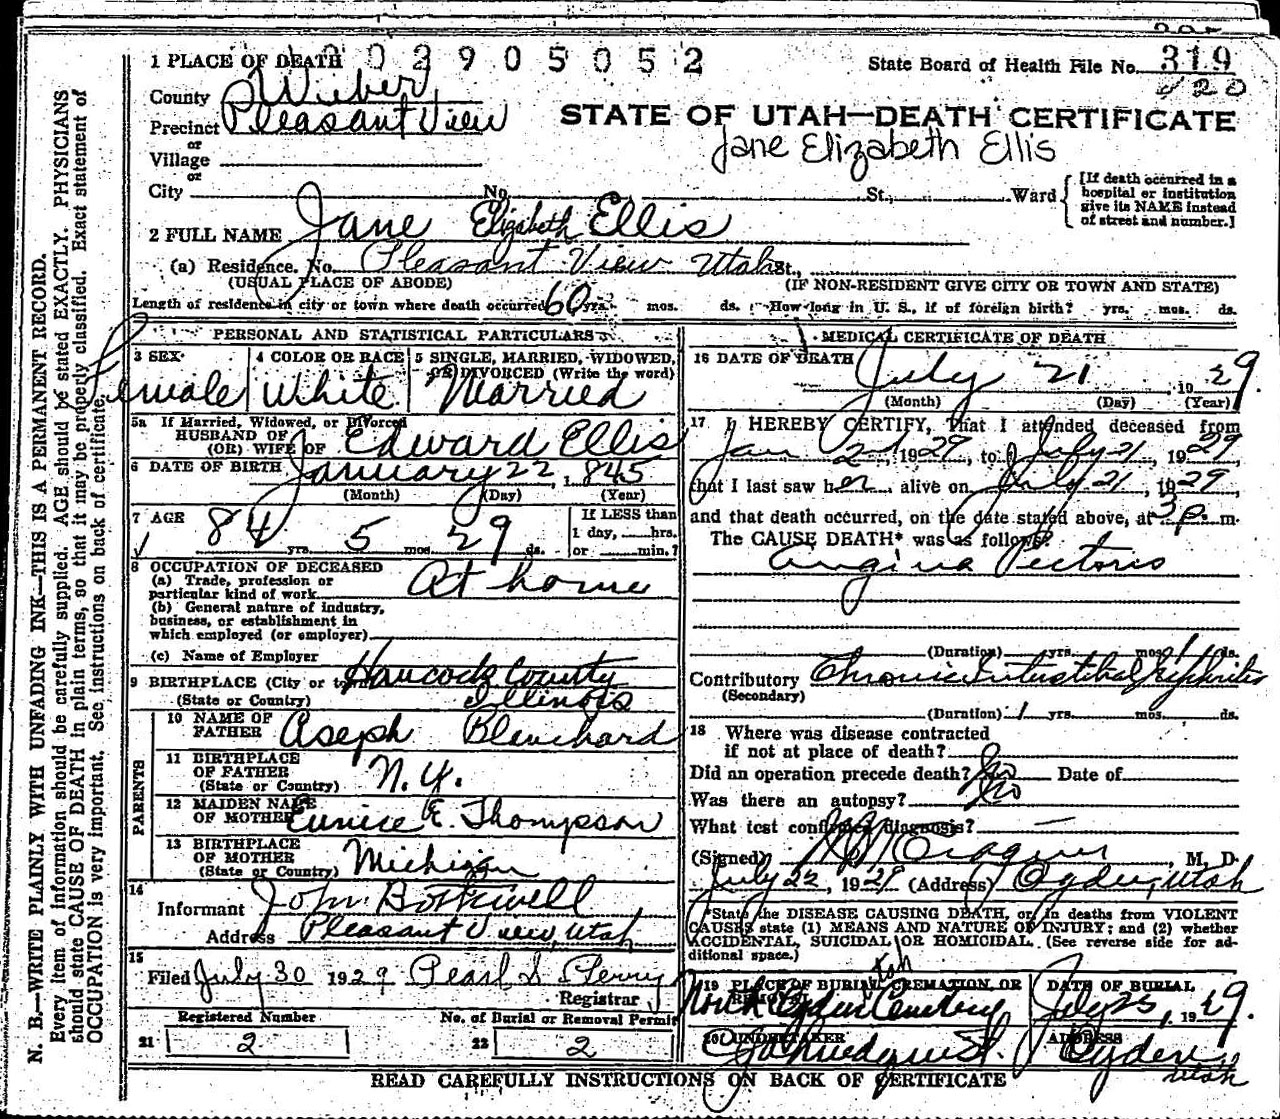 1 PLACE OF DEATH 0 0 2 9 0 5 0 5 2
State Board of Health File No. 319
420
County Weber
Precinct Pleasant View
or
Village
or
City No. St., Ward
[If death occurred in a hospital or institution give its NAME instead of street and number.]
STATE OF UTAH—DEATH CERTIFICATE
Jane Elizabeth Ellis
2 FULL NAME Jane Elizabeth Ellis
(a) Residence. No. Pleasant View Utah St.,
(USUAL PLACE OF ABODE) (IF NON-RESIDENT GIVE CITY OR TOWN AND STATE)
Length of residence in city or town where death occurred 60 yrs. mos. ds. How long in U. S., if of foreign birth? yrs. mos. ds.
PERSONAL AND STATISTICAL PARTICULARS
3 SEX Female
4 COLOR OR RACE White
5 SINGLE, MARRIED, WIDOWED, OR DIVORCED (Write the word) Married
5a If Married, Widowed, or Divorced
HUSBAND OF
(OR) WIFE OF Edward Ellis
6 DATE OF BIRTH January 22, 1845
(Month) (Day) (Year)
7 AGE 84 yrs. 5 mos. 29 ds.
If LESS than
1 day, hrs.
or min.?
8 OCCUPATION OF DECEASED
(a) Trade, profession or
particular kind of work At home
(b) General nature of industry,
business, or establishment in
which employed (or employer)
(c) Name of Employer
9 BIRTHPLACE (City or town) Hancock County
(State or Country) Illinois
PARENTS
10 NAME OF FATHER Aseph Blanchard
11 BIRTHPLACE OF FATHER (State or Country) N. Y.
12 MAIDEN NAME OF MOTHER Eunice E. Thompson
13 BIRTHPLACE OF MOTHER (State or Country) Michigan
14
Informant John Bothwell
Address Pleasant View, Utah
15
Filed July 30 1929 Pearl S. Perry
Registrar
Registered Number No. of Burial or Removal Permit
21 2 22 2
MEDICAL CERTIFICATE OF DEATH
16 DATE OF DEATH July 21 1929.
(Month) (Day) (Year)
17 I HEREBY CERTIFY, That I attended deceased from
Jan 2nd, 1929, to July 21, 1929
that I last saw her alive on July 21, 1929,
and that death occurred, on the date stated above, at 3 p. m.
The CAUSE DEATH* was as follows?
Angina Pectoris
(Duration) yrs. mos. ds.
Contributory Chronic Interstitial Nephritis
(Secondary)
(Duration) 1 yrs. mos. ds.
18 Where was disease contracted
if not at place of death?
Did an operation precede death? No Date of
Was there an autopsy? No
What test confirmed diagnosis? —
(Signed) , M. D.
July 22, 1929 (Address) Ogden, Utah
*State the DISEASE CAUSING DEATH, or, in deaths from VIOLENT
CAUSES state (1) MEANS AND NATURE OF INJURY; and (2) whether
ACCIDENTAL, SUICIDAL OR HOMICIDAL. (See reverse side for ad-
ditional space.)
19 PLACE OF BURIAL, CREMATION, OR REMOVAL North Ogden Cemetery Utah
DATE OF BURIAL July 25, 1929.
20 UNDERTAKER
ADDRESS Ogden, Utah
READ CAREFULLY INSTRUCTIONS ON BACK OF CERTIFICATE
N. B.—WRITE PLAINLY WITH UNFADING INK—THIS IS A PERMANENT RECORD.
Every item of information should be carefully supplied. AGE should be stated EXACTLY. PHYSICIANS
should state CAUSE OF DEATH in plain terms, so that it may be properly classified. Exact statement of
OCCUPATION is very important. See instructions on back of certificate.